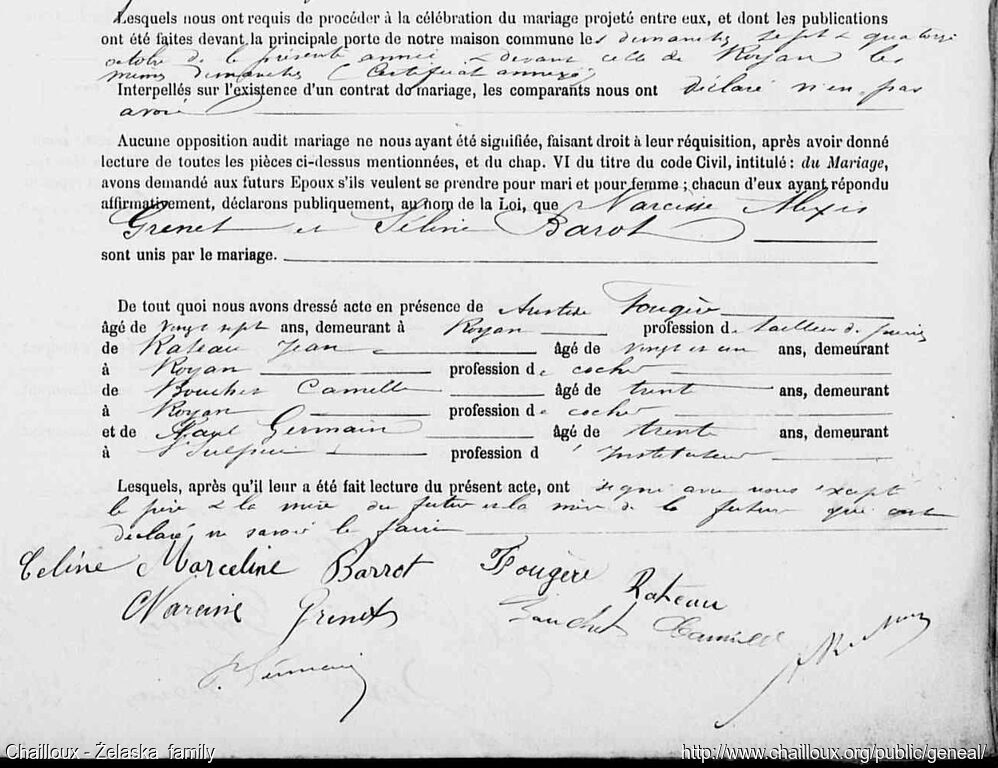 Lesquels nous ont requis de procéder à la célébration du mariage projeté entre eux, et dont les publications
ont été faites devant la principale porte de notre maison commune les dimanches sept & quatorze
octobre de la présente année & devant celle de Royan les
mêmes dimanches (Certificat annexé)
Interpellés sur l'existence d'un contrat de mariage, les comparants nous ont déclaré n'en pas
avoir
Aucune opposition audit mariage ne nous ayant été signifiée, faisant droit à leur réquisition, après avoir donné
lecture de toutes les pièces ci-dessus mentionnées, et du chap. VI du titre du code Civil, intitulé : du Mariage,
avons demandé aux futurs Epoux s'ils veulent se prendre pour mari et pour femme ; chacun d'eux ayant répondu
affirmativement, déclarons publiquement, au nom de la Loi, que Narcisse Alexis
Grenet et Céline Barot
sont unis par le mariage.
De tout quoi nous avons dressé acte en présence de Fougère
âgé de vingt sept ans, demeurant à Royan profession de tailleur de pierres
de Rateau Jean âgé de vingt et un ans, demeurant
à Royan profession de cocher
de Bouchet Camille âgé de trente ans, demeurant
à Royan profession de cocher
et de Germain âgé de trente ans, demeurant
à St Sulpice profession d'instituteur
Lesquels, après qu'il leur a été fait lecture du présent acte, ont signé avec nous excepté
le père & la mère du futur et la mère de la future qui ont
déclaré ne savoir le faire
Celine Marceline Barrot Fougère Rateau
Narcisse Grenet Bouchet Camille
P. Germain
Chailloux - Żelaska family
http://www.chailloux.org/public/geneal/